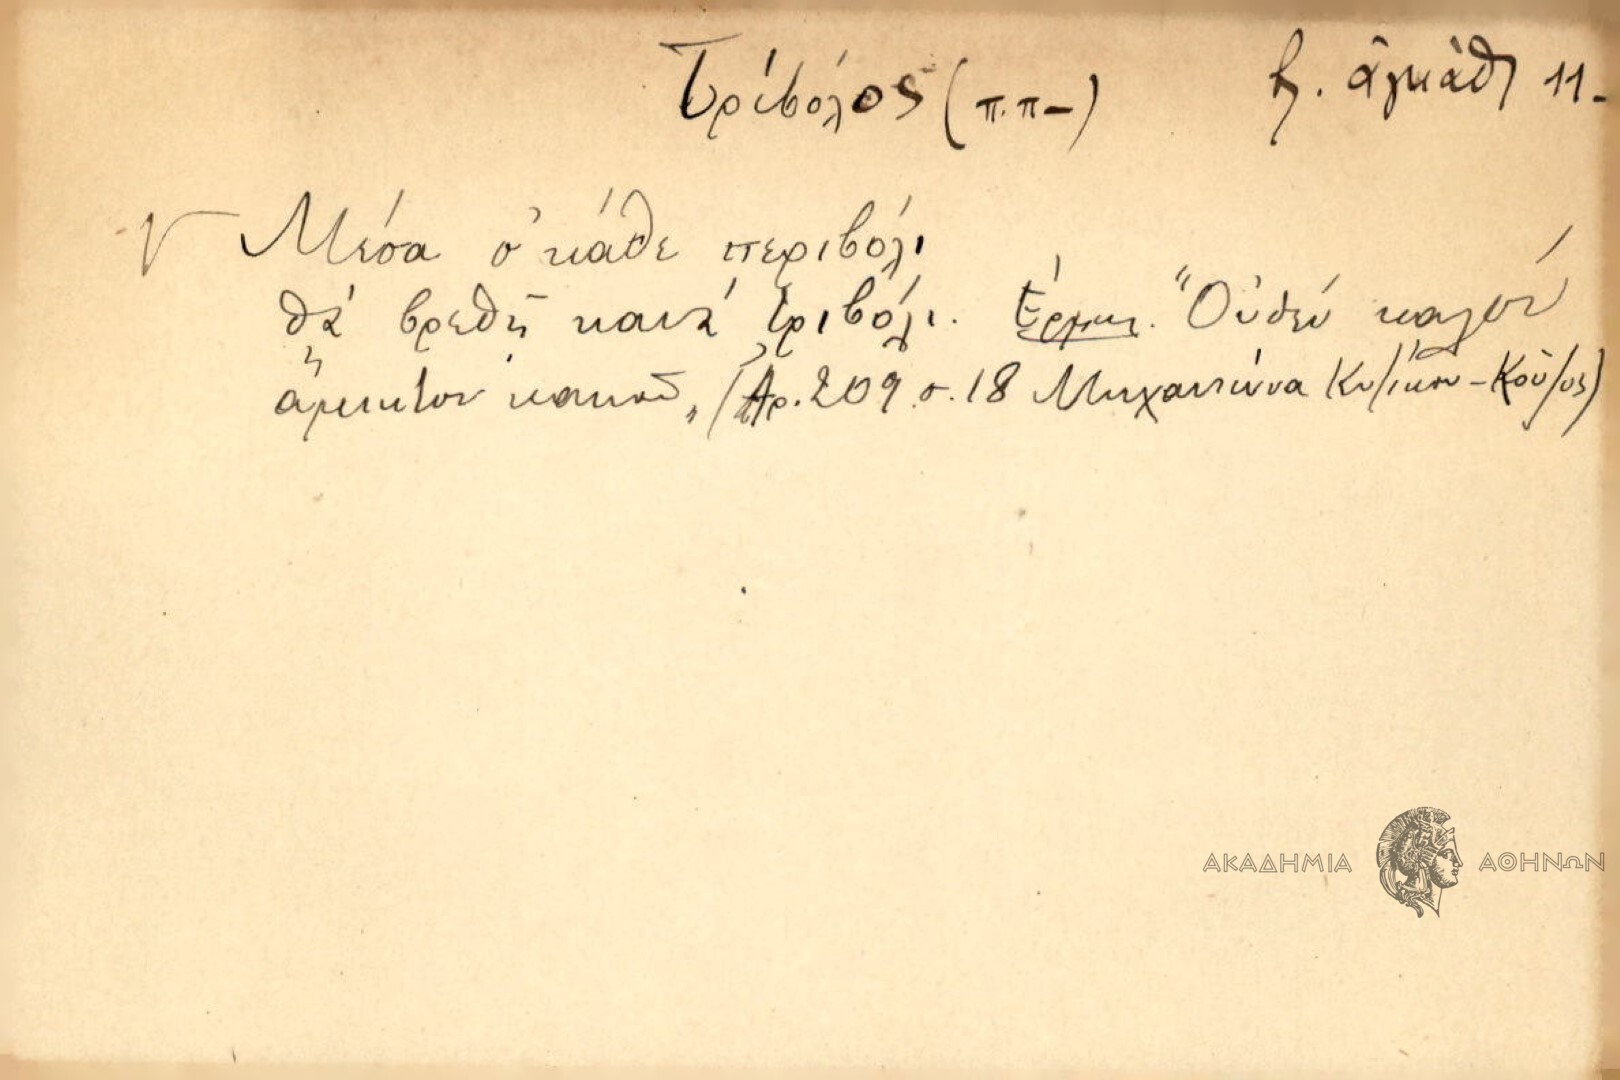 Τρίβολος (π.π-) β. ἀγκάθι 11-
Μέσα σ' κάθε περιβόλι
θὰ βρεθῇ κανὰ τριβόλι. Ἑρμ. "Οὐδὲν καλὸν
ἄμικτον κακοῦ„ (Ἀρ. 209 σ. 18 Μηχανιώνα Κυζίκου -
ΑΚΑΔΗΜΙΑ ΑΘΗΝΩΝ